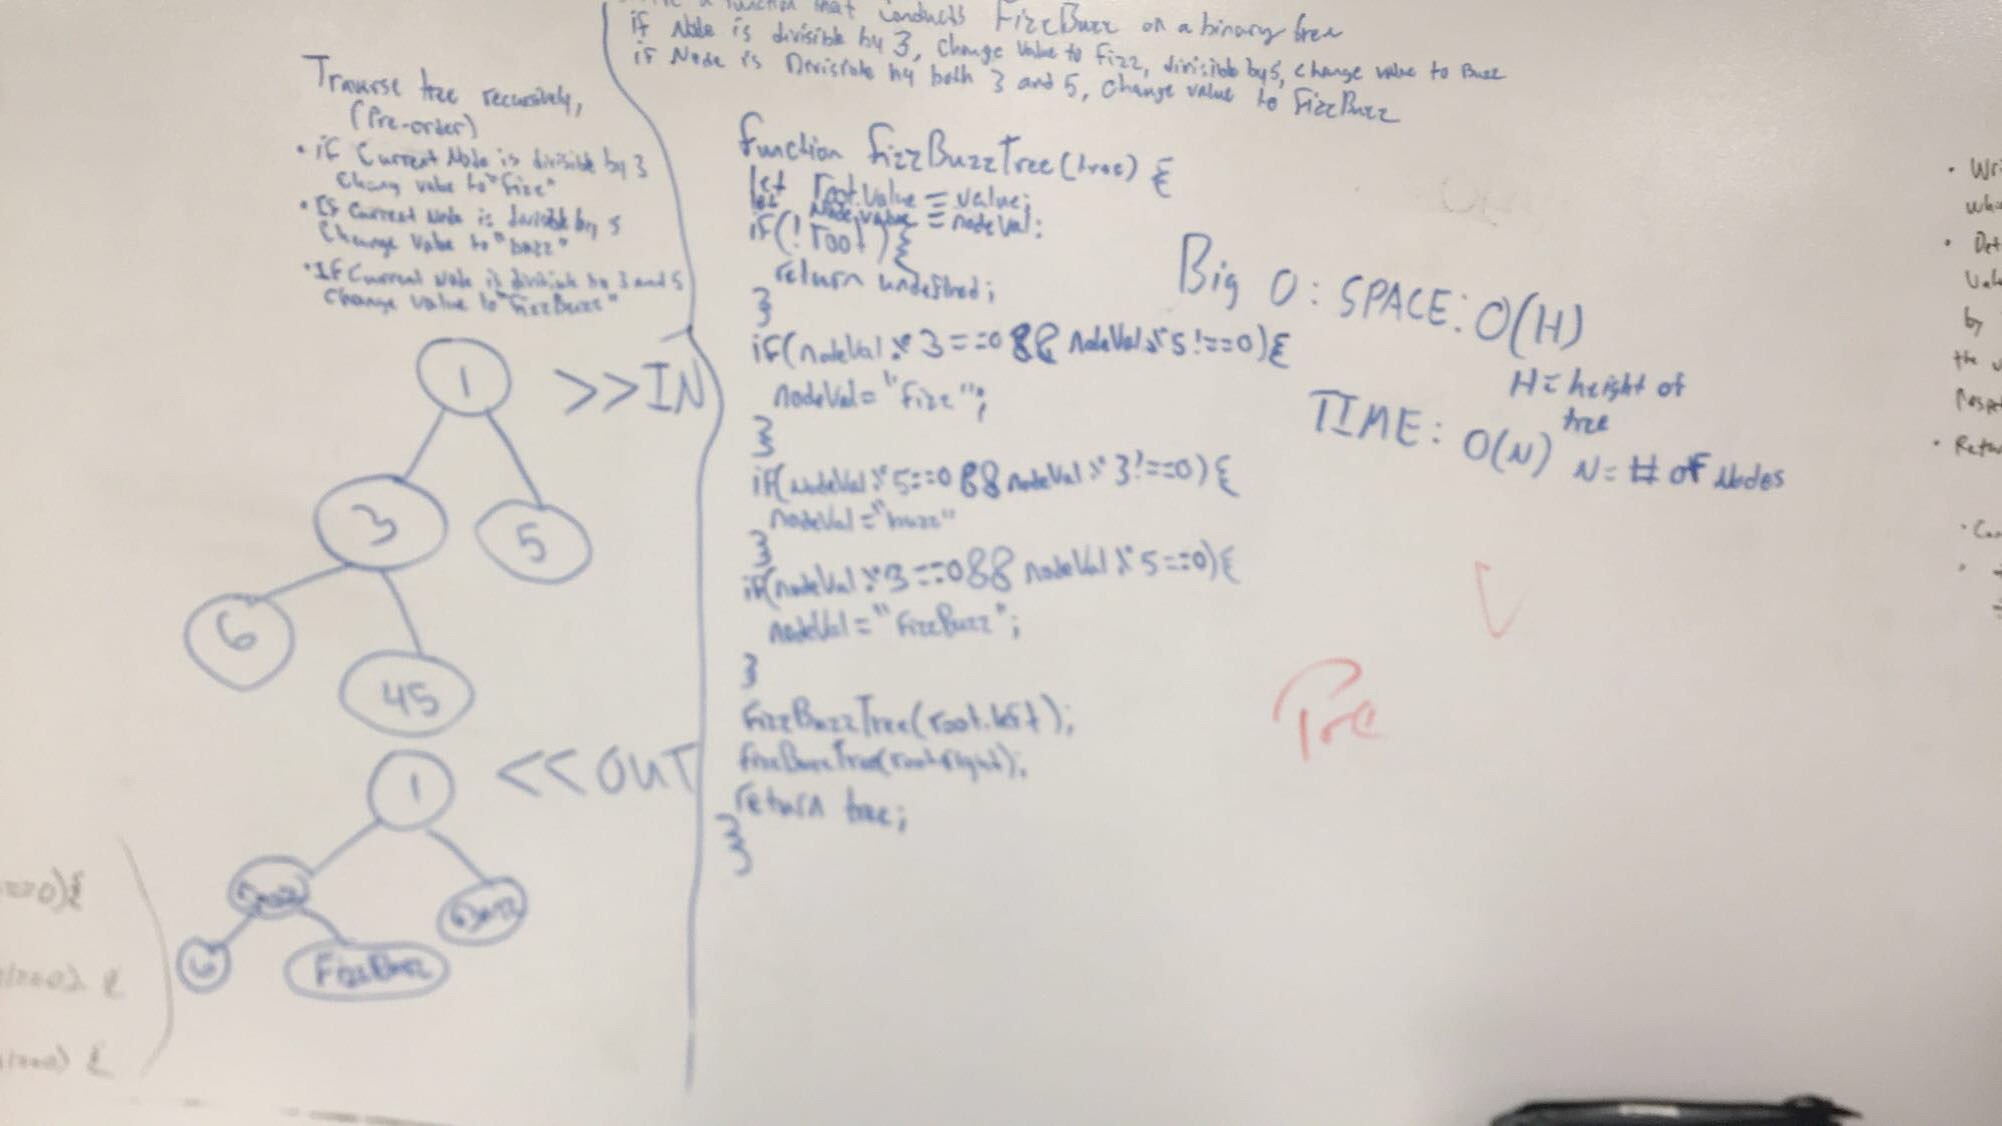 a function that conducts FizzBuzz on a binary tree
if Node is divisible by 3, change value to Fizz, divisible by 5, change value to Buzz
if Node is Divisible by both 3 and 5, change value to FizzBuzz
Traverse tree recursively,
(Pre-order)
• if Current Node is divisible by 3
Change value to "Fizz"
• If Current Node is divisible by 5
Change value to "buzz"
• If Current Node is divisible by 3 and 5
Change value to "FizzBuzz"
1 >>IN
3
5
6
45
1 <<OUT
6
FizzBuzz
function FizzBuzzTree(tree) {
let root.value = value;
let Node.value = nodeVal;
if(!root){
return undefined;
}
if(nodeVal % 3 ==0 && nodeVal % 5 !==0){
nodeVal = "Fizz";
}
if(nodeVal % 5==0 && nodeVal % 3!==0){
nodeVal = "buzz"
}
if(nodeVal % 3 ==0 && nodeVal % 5 ==0){
nodeVal = "FizzBuzz";
}
FizzBuzzTree(root.left);
FizzBuzzTree(root.right);
return tree;
}
}
Big O: SPACE: O(H)
H = height of
tree
TIME: O(N) N = # of Nodes
Tre
• Wri
• Det
by
the
==0){